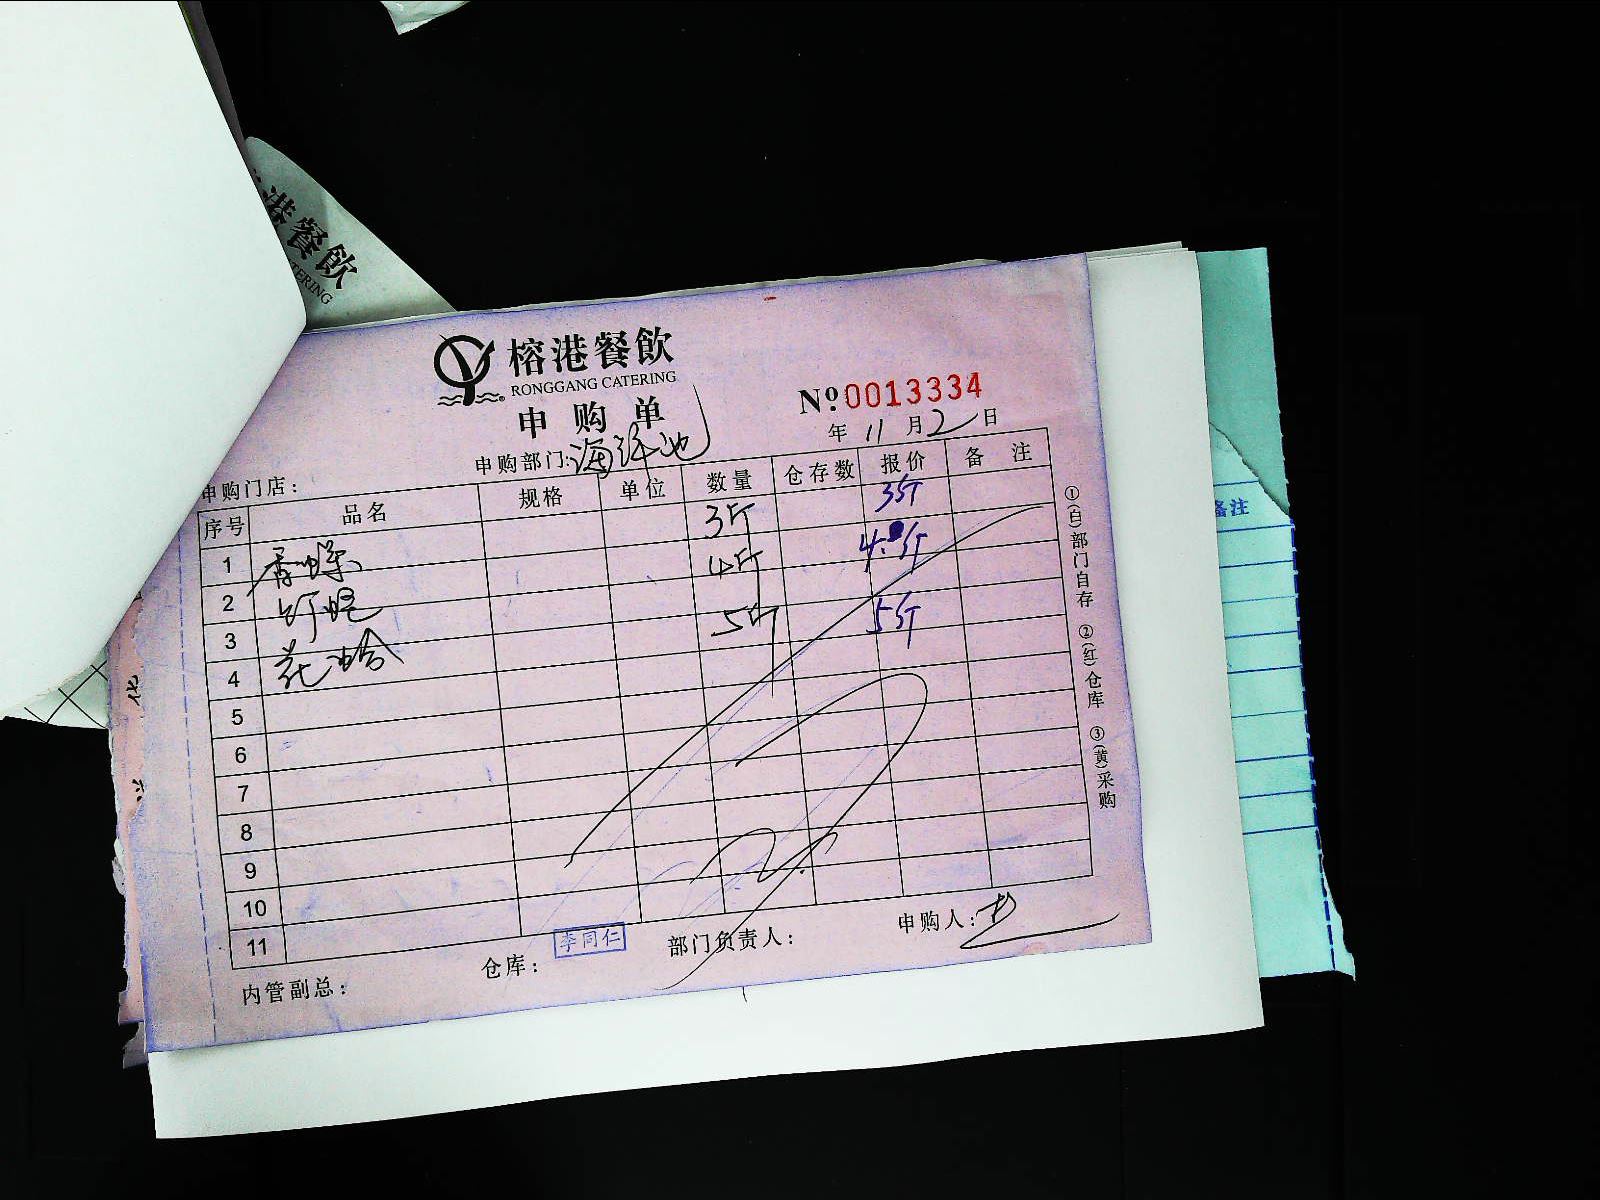 港餐飲
TERING
榕港餐飲
RONGGANG CATERING
申购单
Nº 0013334
年 11 月 2 日
申购部门: 海鲜池
申购门店:
序号 品名 规格 单位 数量 仓存数 报价 备注
1 香螺 3斤 35斤
2 4斤 4.8斤
3 花蛤 5斤 5斤
4
5
6
7
8
9
10
11
内管副总:
仓库: 李同仁
部门负责人:
申购人:
①(白)部门自存 ②(红)仓库 ③(黄)采购
备注